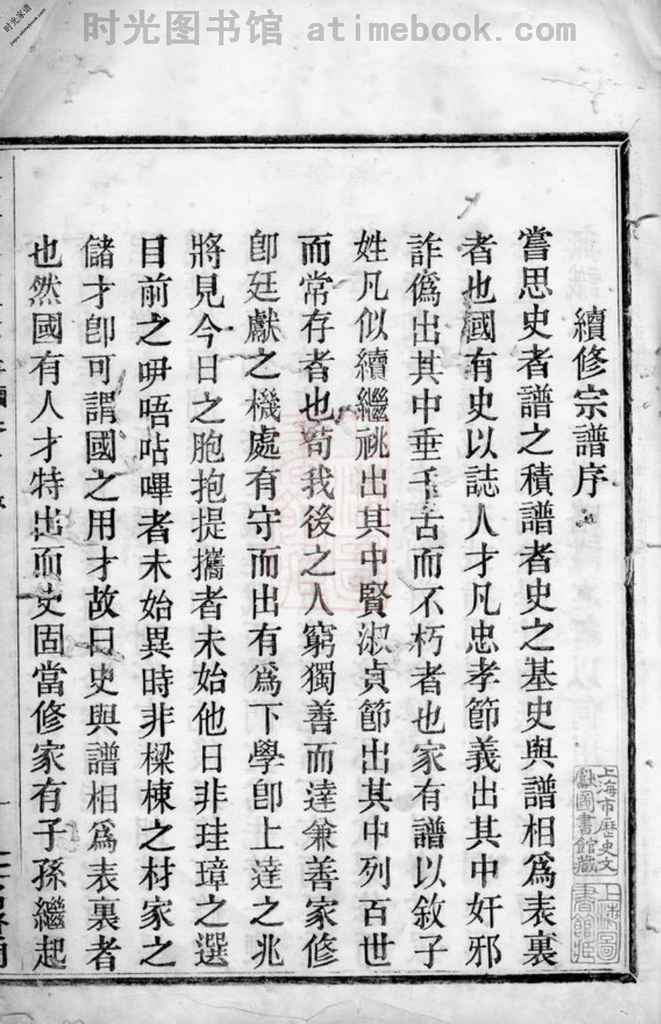 时光图书馆 atimebook.com
时光家谱
續修宗譜序
嘗思史者譜之積譜者史之基史與譜相爲表裏
者也國有史以誌人才凡忠孝節義出其中奸邪
詐僞出其中垂千古而不朽者也家有譜以敘子
姓凡似續繼祧出其中賢淑貞節出其中列百世
而常存者也苟我後之人窮獨善而達兼善家修
卽廷獻之機處有守而出有爲下學卽上達之兆
將見今日之胞抱提攜者未始他日非珪璋之選
目前之吚唔呫嗶者未始異時非樑棟之材家之
儲才卽可謂國之用才故曰史與譜相爲表裏者
也然國有人才特出而史固當修家有子孫繼起
上海市歷史文
獻圖書館藏
上海圖
書館藏